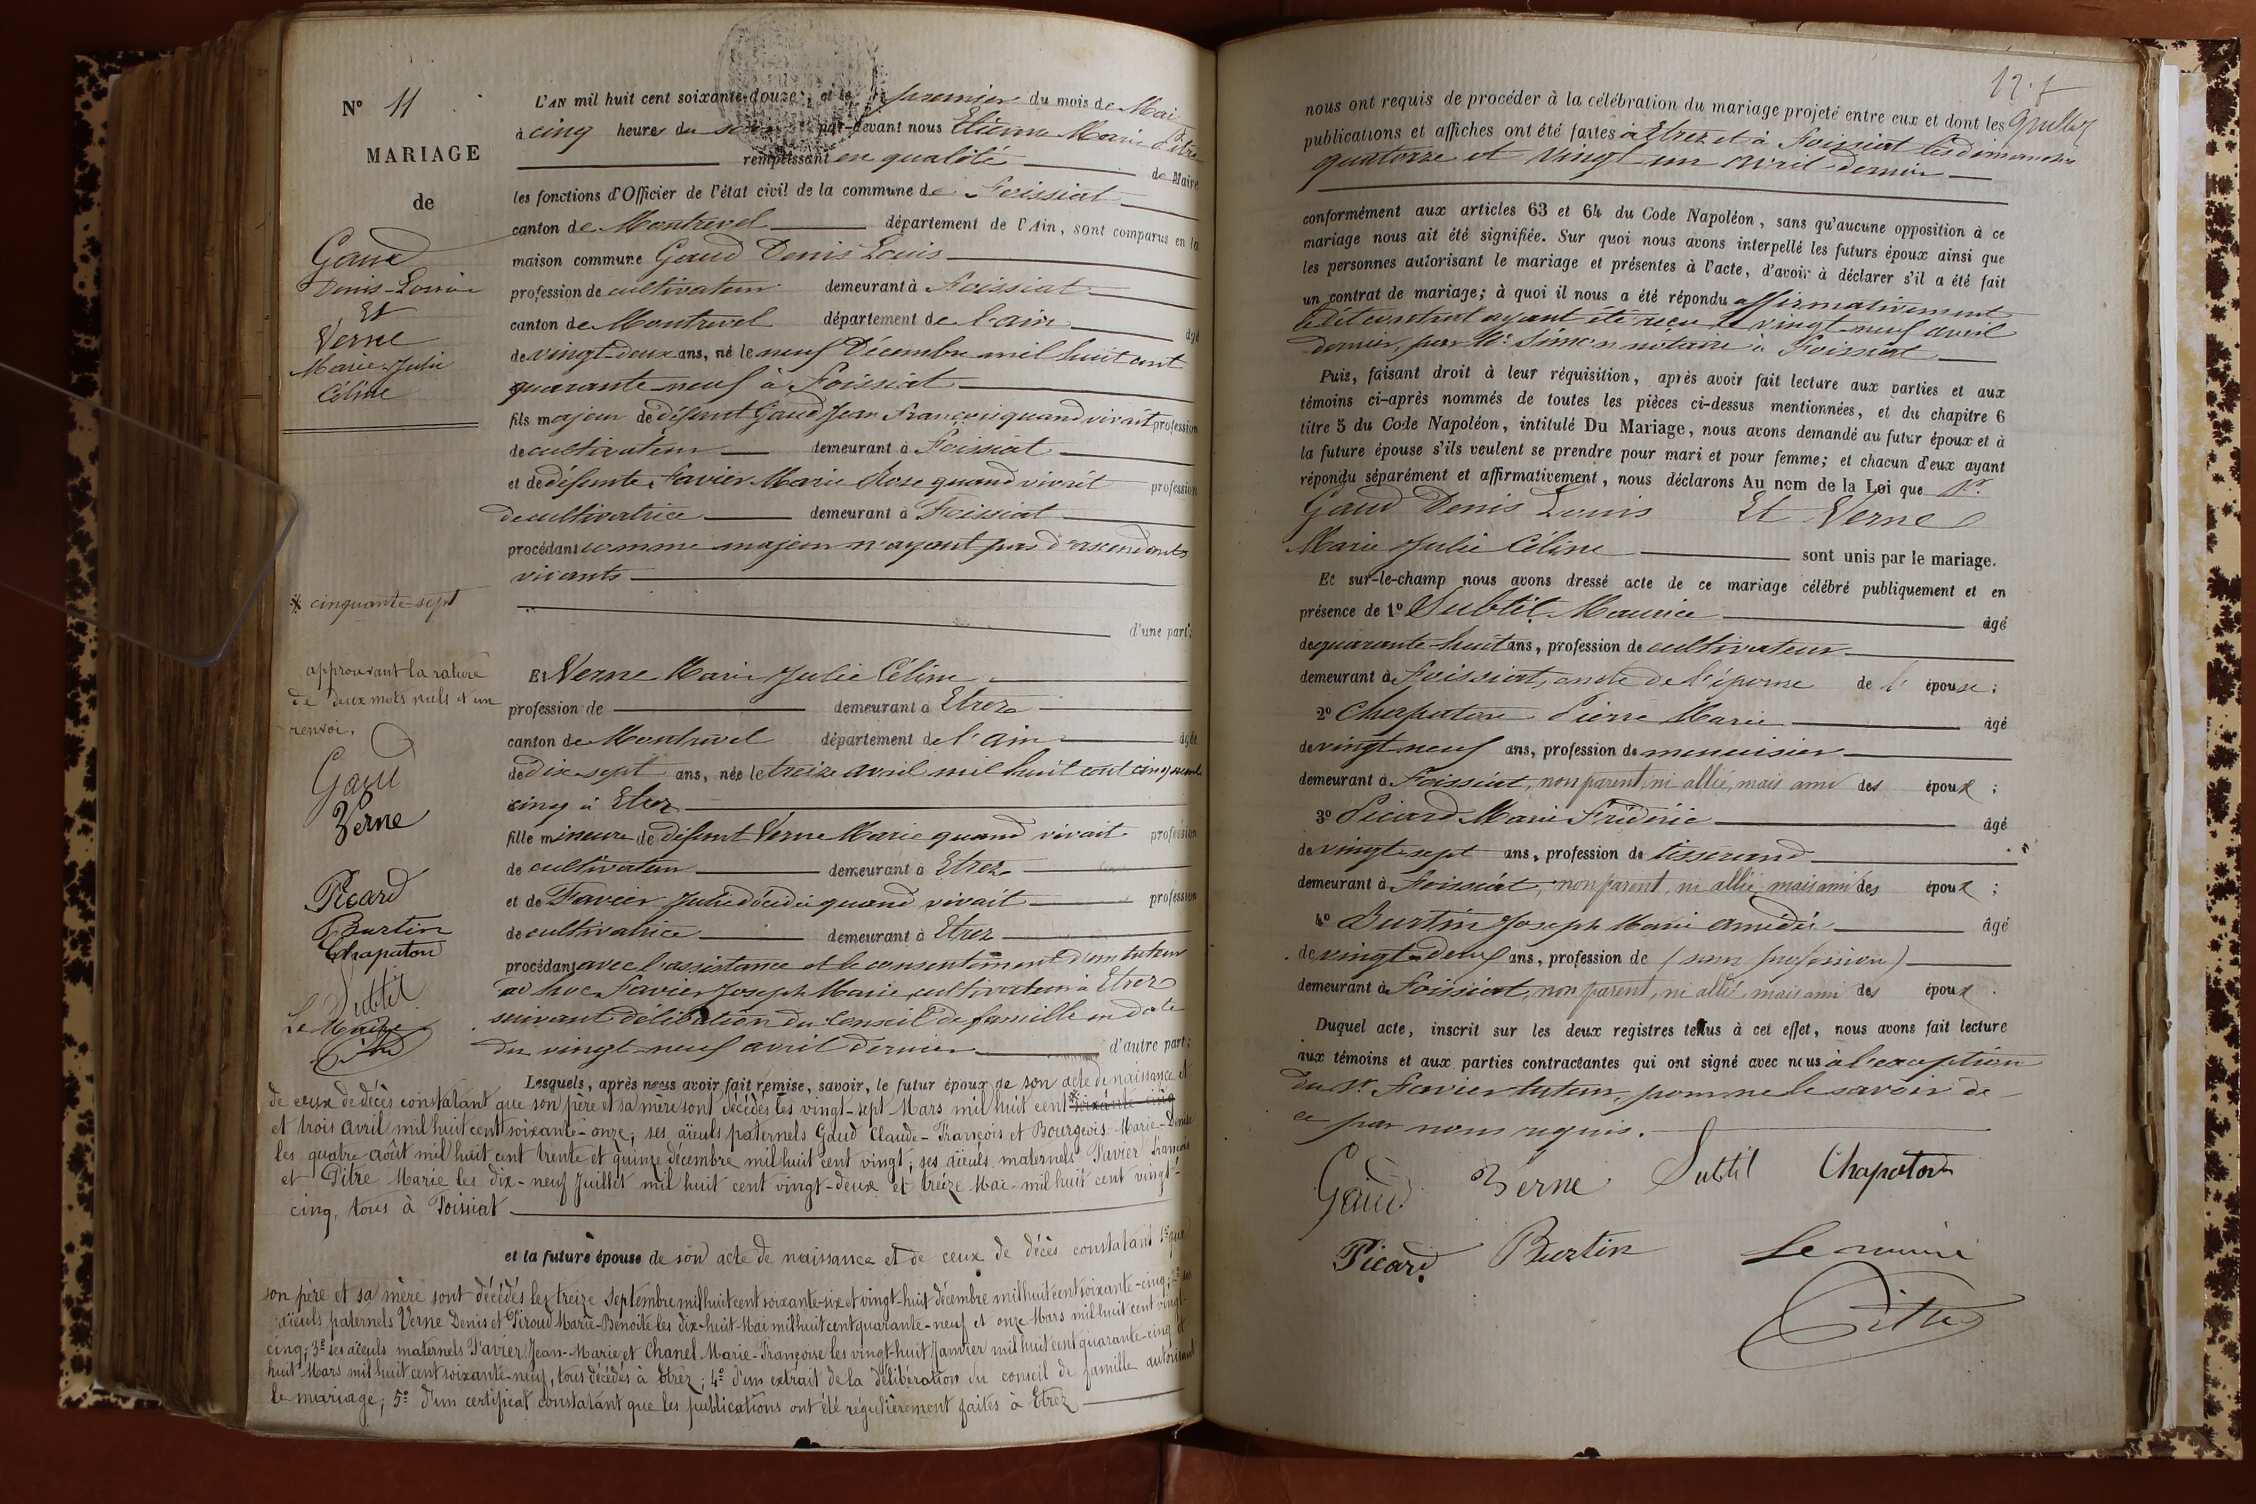 N° 11
MARIAGE
de
Gaud
Denis-Louis
Et
Verne
Marie Julie
Céline
* cinquante-sept
approuvant la rature
de deux mots nuls et un
renvoi.
Gaud
Verne
Picard
Burtin
Chapaton
Subtil
Le Maire
Pitre
L'AN mil huit cent soixante-douze, et le premier du mois de Mai
à cinq heures du soir par-devant nous Etienne Marie Pitre
remplissant en qualité de Maire
les fonctions d'Officier de l'état civil de la commune de Foissiat
canton de Montrevel département de l'Ain, sont comparus en la
maison commune Gaud Denis Louis
profession de cultivateur demeurant à Foissiat
canton de Montrevel département de l'ain âgé
de vingt-deux ans, né le neuf Décembre mil huit cent
quarante-neuf à Foissiat
fils majeur de défunt Gaud Jean François quand vivait profession
de cultivateur demeurant à Foissiat
et de défunte Favier Marie Rose quand vivait profession
de cultivatrice demeurant à Foissiat
procédant comme majeur n'ayant pas d'ascendants
vivants
d'une part;
Et Verne Marie Julie Céline
profession de demeurant à Etrez
canton de Montrevel département de l'ain âgée
de dix-sept ans, née le treize avril mil huit cent cinquante
cinq à Etrez
fille mineure de défunt Verne Marie quand vivait profession
de cultivateur demeurant à Etrez
et de Favier Julie décédée quand vivait profession
de cultivatrice demeurant à Etrez
procédant avec l'assistance et le consentement d'un tuteur
ad hoc Favier Joseph Marie cultivateur à Etrez
suivant délibération du Conseil de famille en date
du vingt-neuf avril dernier d'autre part;
Lesquels, après nous avoir fait remise, savoir, le futur époux de son acte de naissance et
de ceux de décès constatant que son père et sa mère sont décédés les vingt-sept Mars mil huit cent * soixante cinq
et trois avril mil huit cent soixante-onze; ses aïeuls paternels Gaud Claude-François et Bourgeois Marie-Denise
les quatre août mil huit cent trente et quinze décembre mil huit cent vingt; ses aïeuls maternels Favier François
et Pitre Marie les dix-neuf Juillet mil huit cent vingt-deux et treize Mai mil huit cent vingt-
cinq, tous à Foissiat
et la future épouse de son acte de naissance et de ceux de décès constatant 1° que
son père et sa mère sont décédés les treize septembre mil huit cent soixante-six et vingt-huit décembre mil huit cent soixante-cinq; 2° ses
aïeuls paternels Verne Denis et Piroud Marie-Benoite les dix-huit Mai mil huit cent quarante-neuf et onze Mars mil huit cent vingt-
cinq; 3° ses aïeuls maternels Favier Jean-Marie et Chanel Marie-Françoise les vingt-huit Janvier mil huit cent quarante-cinq et
huit Mars mil huit cent soixante-neuf, tous décédés à Etrez; 4° d'un extrait de la délibération du conseil de famille autorisant
le mariage; 5° d'un certificat constatant que les publications ont été régulièrement faites à Etrez
nous ont requis de procéder à la célébration du mariage projeté entre eux et dont les
publications et affiches ont été faites à Etrez et à Foissiat les dimanches
quatorze et vingt un avril dernier
conformément aux articles 63 et 64 du Code Napoléon, sans qu'aucune opposition à ce
mariage nous ait été signifiée. Sur quoi nous avons interpellé les futurs époux ainsi que
les personnes autorisant le mariage et présentes à l'acte, d'avoir à déclarer s'il a été fait
un contrat de mariage; à quoi il nous a été répondu affirmativement
le dit contrat ayant été reçu le vingt-neuf avril
dernier, par Me Simon notaire à Foissiat
Puis, faisant droit à leur réquisition, après avoir fait lecture aux parties et aux
témoins ci-après nommés de toutes les pièces ci-dessus mentionnées, et du chapitre 6
titre 5 du Code Napoléon, intitulé Du Mariage, nous avons demandé au futur époux et à
la future épouse s'ils veulent se prendre pour mari et pour femme; et chacun d'eux ayant
répondu séparément et affirmativement, nous déclarons Au nom de la Loi que
Gaud Denis Louis Et Verne
Marie Julie Céline sont unis par le mariage.
Et sur-le-champ nous avons dressé acte de ce mariage célébré publiquement et en
présence de 1° Subtil Maurice âgé
de quarante-huit ans, profession de cultivateur
demeurant à Foissiat, oncle de l'épouse de l' épouse;
2° Chapaton Pierre Marie âgé
de vingt neuf ans, profession de menuisier
demeurant à Foissiat, non parent, ni allié, mais ami des époux;
3° Picard Marie Frédéric âgé
de vingt-sept ans, profession de tisserand
demeurant à Foissiat, non parent, ni allié, mais ami des époux;
4° Burtin Joseph Marie Amédée âgé
de vingt-deux ans, profession de (sans profession)
demeurant à Foissiat, non parent, ni allié, mais ami des époux.
Duquel acte, inscrit sur les deux registres tenus à cet effet, nous avons fait lecture
aux témoins et aux parties contractantes qui ont signé avec nous à l'exception
du Sr Favier tuteur, pour ne le savoir de
ce par nous requis.
Gaud Verne Subtil Chapaton
Picard Burtin Le maire
Pitre